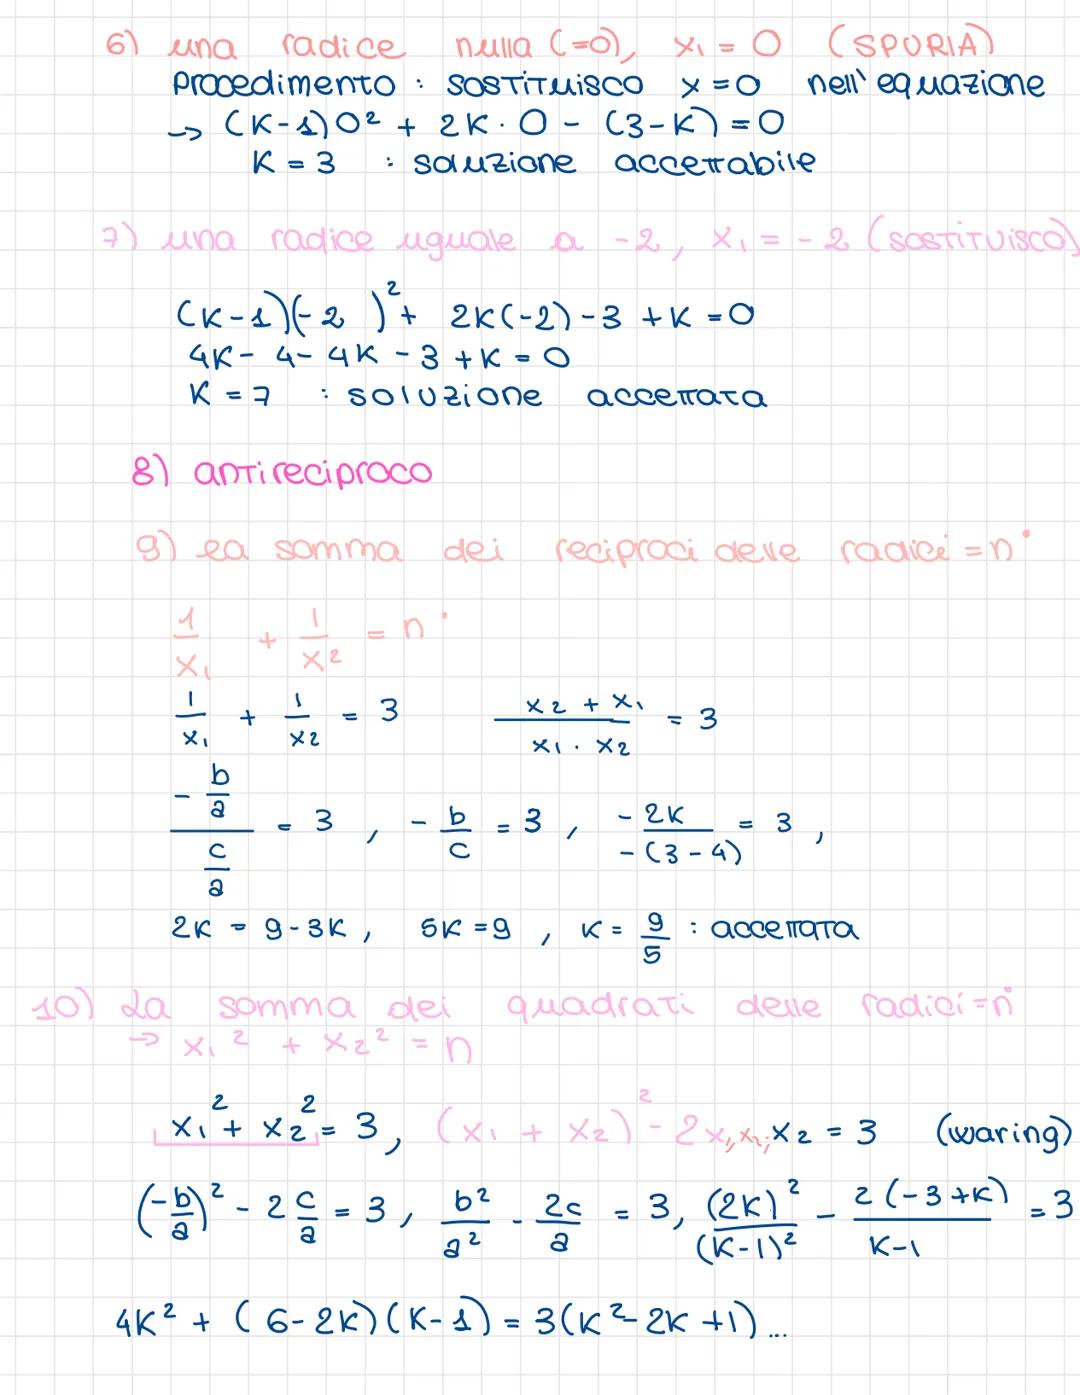 6) una radice nulla (=0), x₁ = 0 (SPURIA)
procedimento : sostituisco x=0 nell'equazione
→ (K-1)0² + 2K·0 - (3-K) = 0
K = 3 : soluzione accettabile
7) una radice uguale a -2, x₁ = -2 (sostituisco)
(K-1)(-2 )² + 2K(-2) - 3 + K = 0
4K - 4 - 4K - 3 + K = 0
K = 7 : soluzione accettata
8) antireciproco
9) la somma dei reciproci delle radici = n°
1/x₁ + 1/x₂ = n°
1/x₁ + 1/x₂ = 3 (x₂ + x₁)/(x₁ · x₂) = 3
(-b/a)/(c/a) = 3 , -b/c = 3 , -2K/-(3-4) = 3 ,
2K = 9-3K , 5K = 9 , K = 9/5 : accettata
10) La somma dei quadrati delle radici = n°
→ x₁² + x₂² = n
x₁² + x₂² = 3, (x₁ + x₂)² - 2x₁x₂; x₂ = 3 (waring)
(-b/a)² - 2 c/a = 3 , b²/a² - 2c/a = 3, (2K)²/(K-1)² - 2(-3+K)/K-1 = 3
4K² + (6-2K)(K-1) = 3(K²-2K+1)...